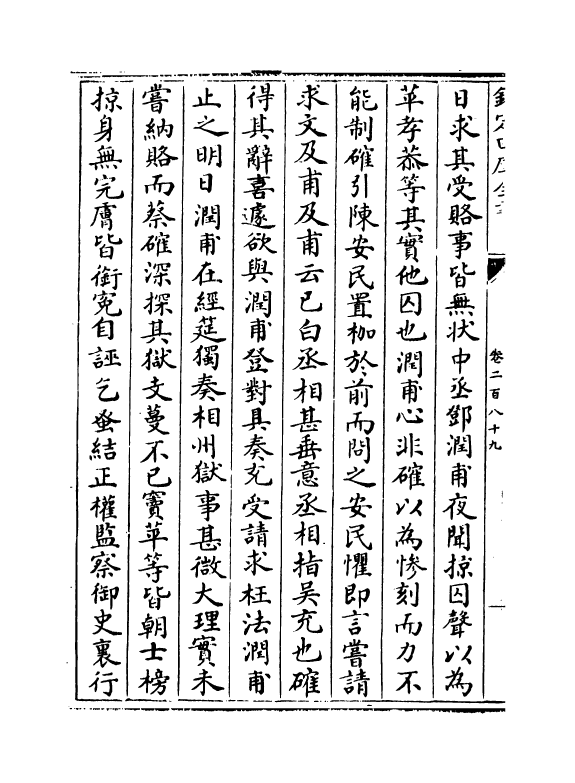 卷二百八十九
日求其受賂事皆無状中丞鄧潤甫夜聞掠囚聲以為
苹孝恭等其實他囚也潤甫心非確以為慘刻而力不
能制確引陳安民置枷於前而問之安民懼即言嘗請
求文及甫及甫云已白丞相甚垂意丞相指吴充也確
得其辭喜遽欲與潤甫登對具奏充受請求枉法潤甫
止之明日潤甫在經筵獨奏相州獄事甚微大理實未
嘗納賂而蔡確深探其獄支蔓不已竇苹等皆朝士榜
掠身無完膚皆銜寃自誣乞蚤結正權監察御史裏行